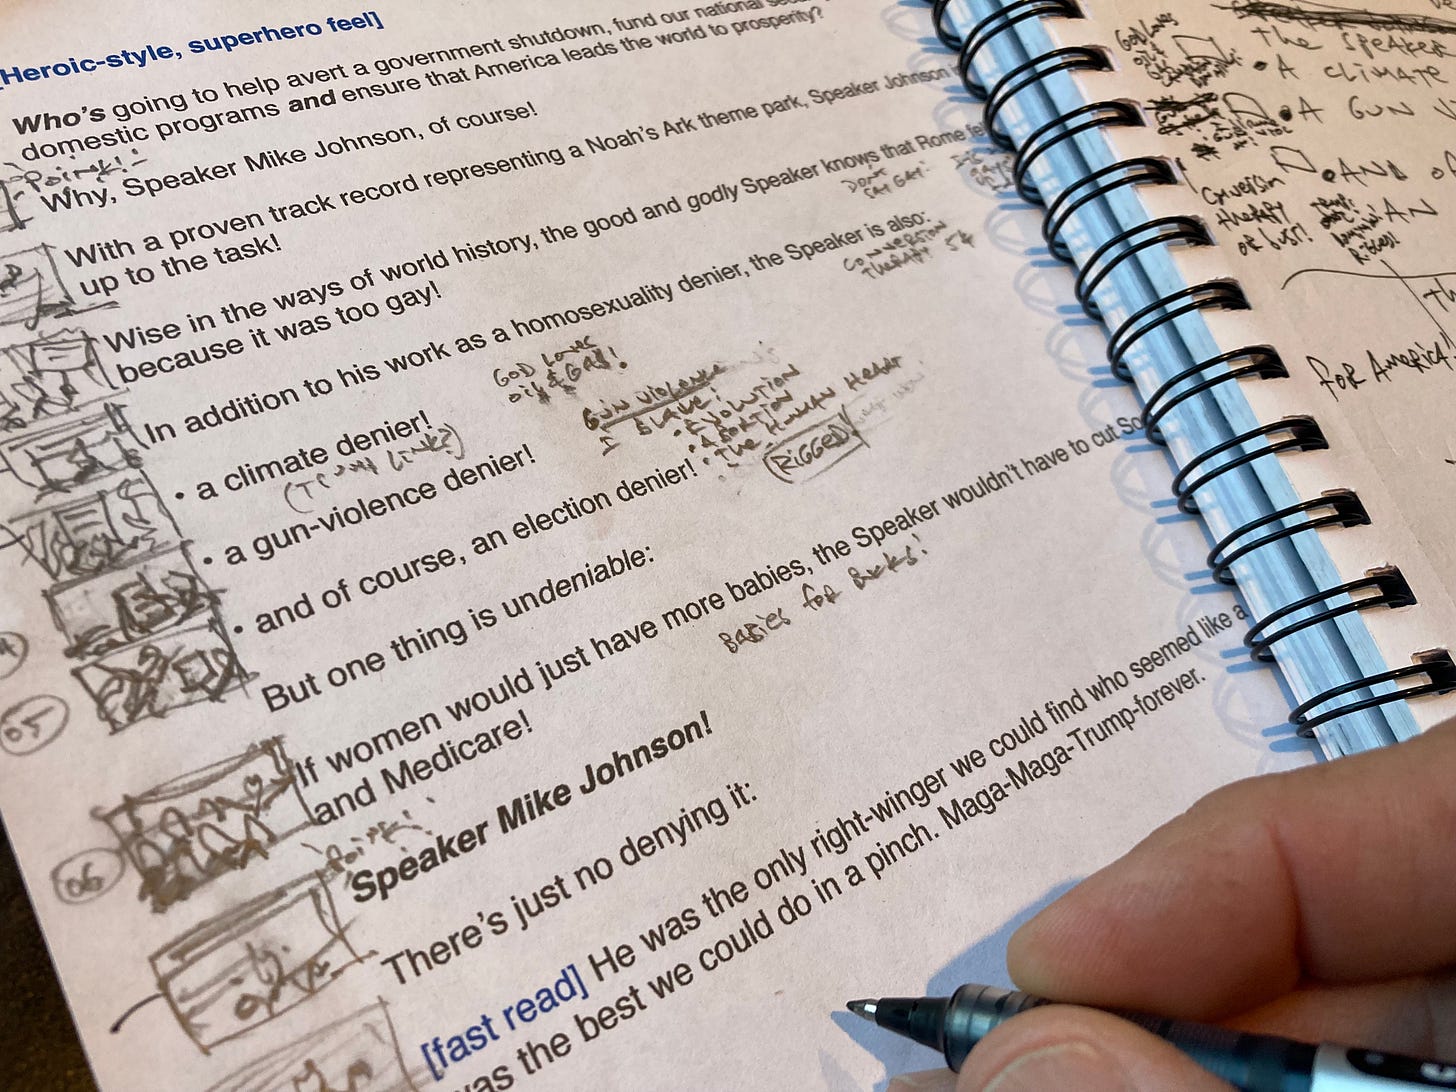 [Heroic-style, superhero feel]
Who's going to help avert a government shutdown, fund our national
domestic programs and ensure that America leads the world to prosperity?
Point!
Why, Speaker Mike Johnson, of course!
With a proven track record representing a Noah's Ark theme park, Speaker Johnson
up to the task!
Wise in the ways of world history, the good and godly Speaker knows that Rome
because it was too gay!
DON'T
SAY GAY!
In addition to his work as a homosexuality denier, the Speaker is also:
CONVERSION
THERAPY
GOD LOVES
OIL & GAS!
• a climate denier!
GUN VIOLENCE
• EVOLUTION
• ABORTION
• THE HUMAN HEART
• a gun-violence denier!
(RIGGED)
• and of course, an election denier!
But one thing is undeniable:
If women would just have more babies, the Speaker wouldn't have to cut
and Medicare!
BABIES for Bucks!
05
06
Point!
Speaker Mike Johnson!
There's just no denying it:
[fast read] He was the only right-winger we could find who seemed like a
was the best we could do in a pinch. Maga-Maga-Trump-forever.
God Loves
oil &
THE SPEAKER
• A CLIMATE
• A GUN
Conversion
therapy
or bust!
• AND
AN
Rigged!
for America!